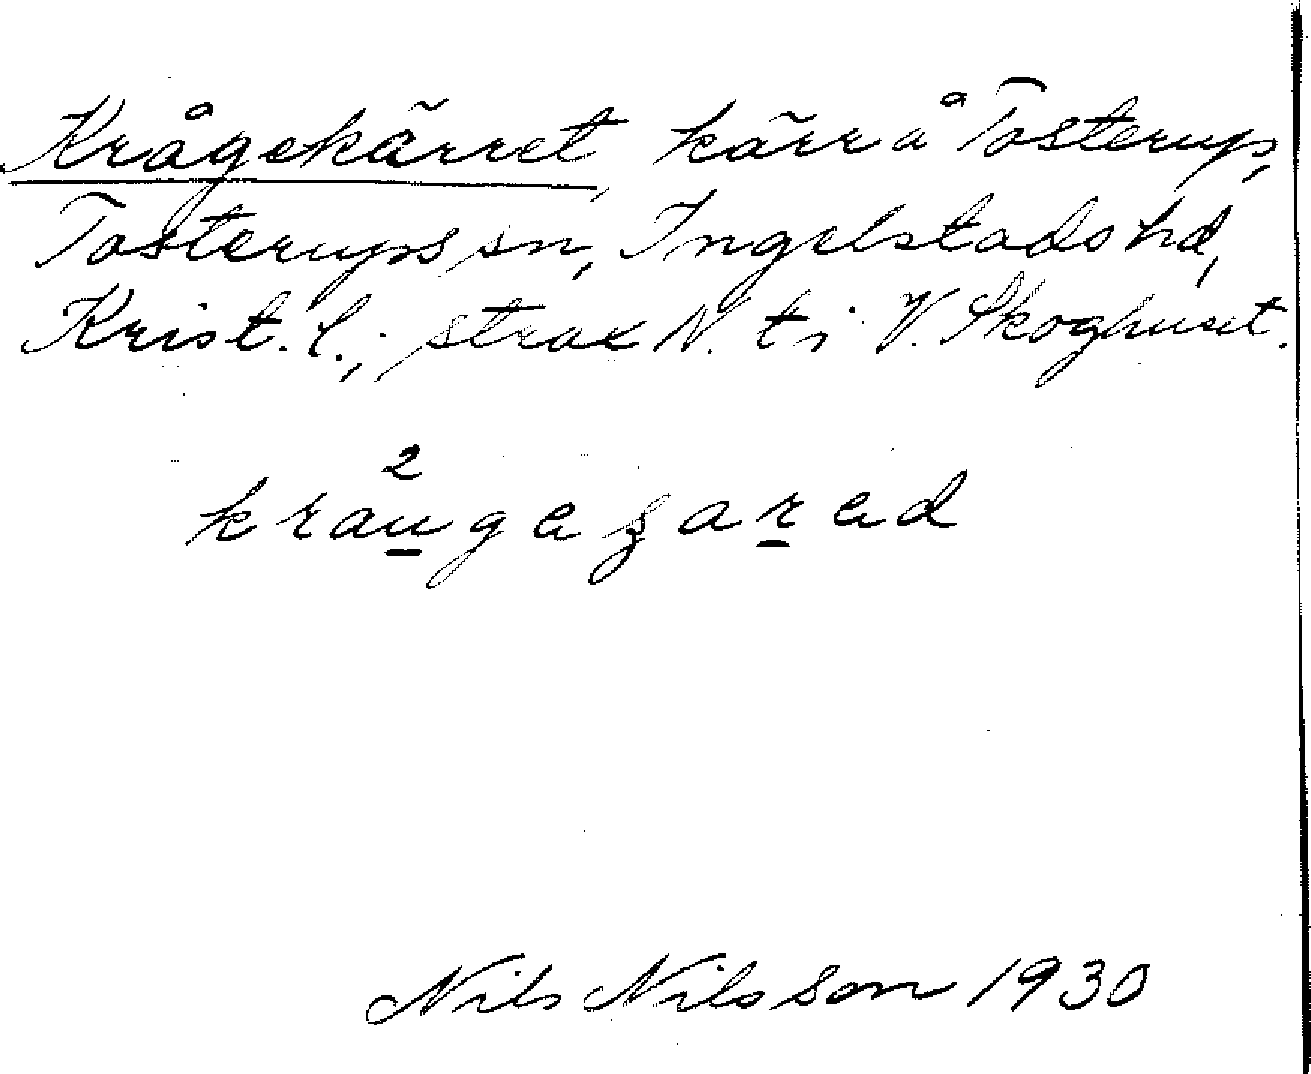 Krågekärret, kärr å Tosterup,
Tosterups sn, Ingelstads hd,
Krist. l.; strax N. t; V. Skoghuset.
2
kraugeʒared
Nils Nilsson 1930